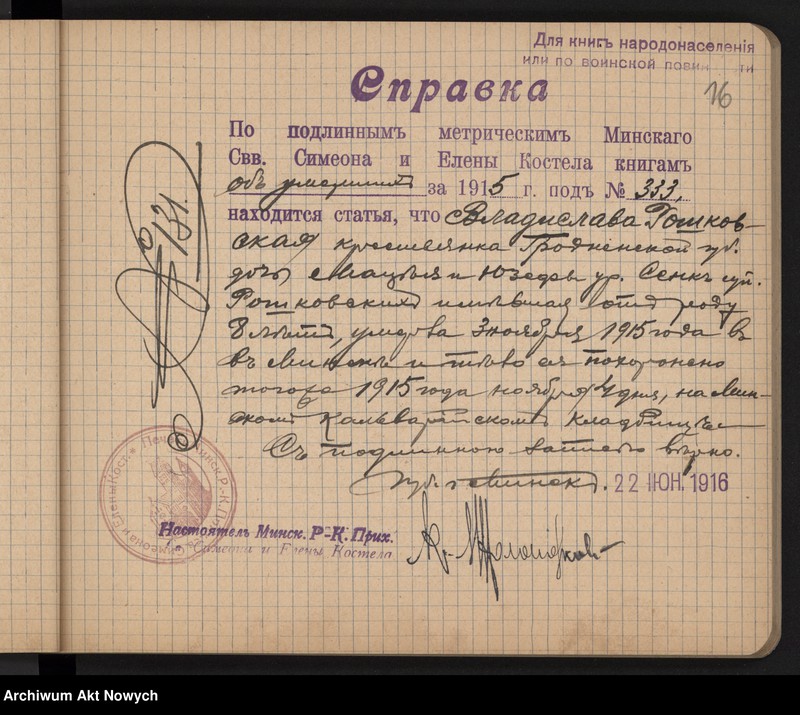 Для книгъ народонаселенія
или по воинской повин ти
16
Справка
По подлиннымъ метрическимъ Минскаго
Свв. Симеона и Елены Костела книгамъ
объ умершихъ за 1915 г. подъ № 333,
находится статья, что Владислава Рошков-
ская крестьянка Гродненской губ.
дочь Мацея и Юзефы ур. Сенкъ суп.
Рошковскихъ имѣвшая отъ роду
8 лѣтъ, умерла 3 ноября 1915 года въ
въ Минскѣ и тѣло ея похоронено
тогоже 1915 года ноября 4 дня, на Мин-
скомъ Кальварійскомъ кладбищѣ
Съ подлинною записью вѣрно.
Губ. г. Минскъ. 22 ІЮН. 1916
№ 131.
Настоятель Минск. Р-К. Прих.
Св. Симеона и Елены Костела
Archiwum Akt Nowych